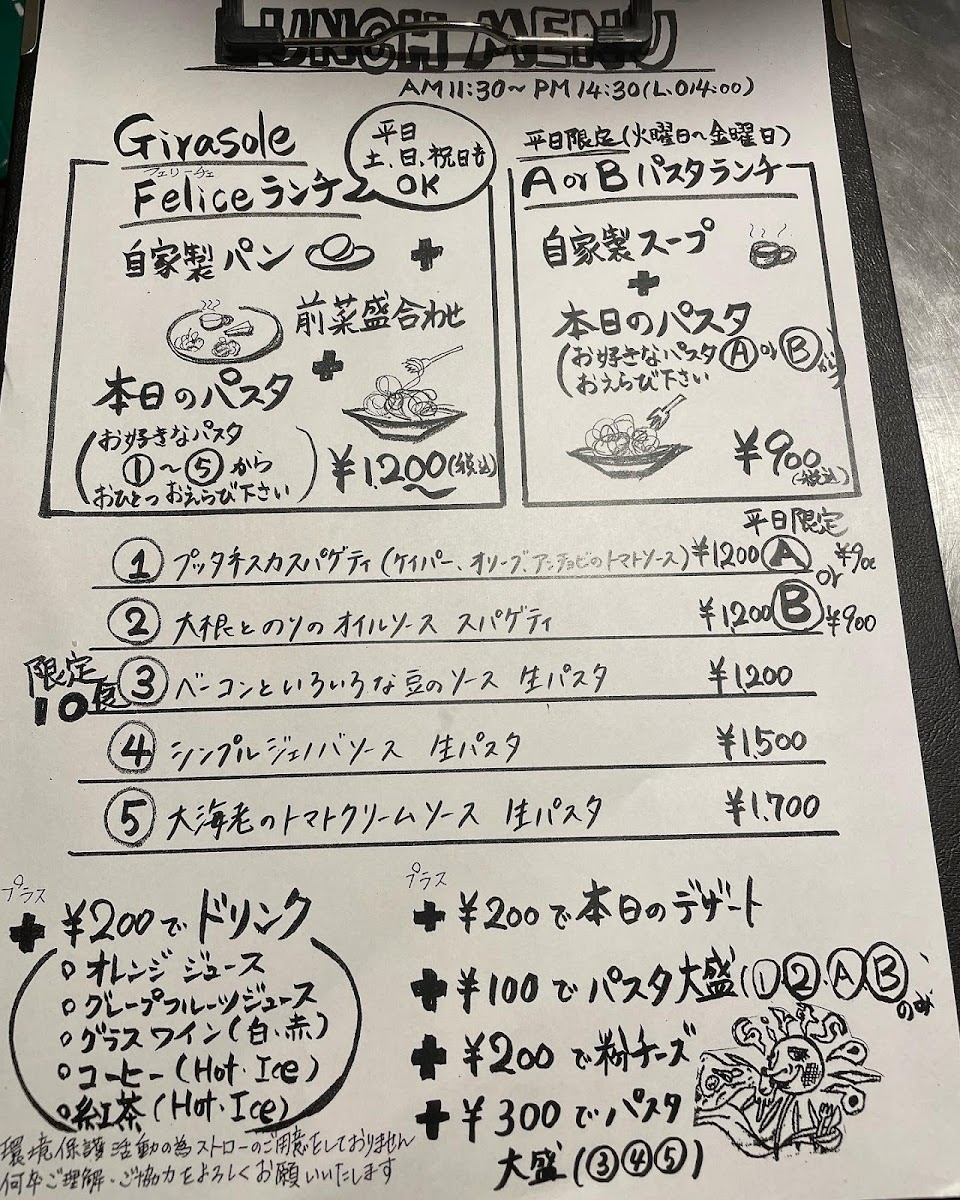 LUNCH MENU
AM11:30〜PM14:30(L.O14:00)
Girasole
フェリーチェ
Feliceランチ
平日
土、日、祝日も
OK
自家製パン +
前菜盛合わせ
+
本日のパスタ
(お好きなパスタ
①〜⑤から
おひとつおえらび下さい)
¥1,200(税込)
平日限定(火曜日〜金曜日)
A or B パスタランチ
自家製スープ
+
本日のパスタ
(お好きなパスタⒶ or Ⓑから
おえらび下さい)
¥900
(税込)
平日限定
① プッタネスカスパゲティ(ケイパー、オリーブ、アンチョビのトマトソース) ¥1200 Ⓐ ¥900
or
② 大根とのりのオイルソース スパゲティ ¥1,200 Ⓑ ¥900
限定
10食
③ ベーコンといろいろな豆のソース 生パスタ ¥1,200
④ シンプルジェノバソース 生パスタ ¥1,500
⑤ 大海老のトマトクリームソース 生パスタ ¥1,700
プラス
+ ¥200でドリンク
○ オレンジジュース
○ グレープフルーツジュース
○ グラスワイン(白・赤)
○ コーヒー(Hot・Ice)
○ 紅茶(Hot・Ice)
環境保護活動の為ストローのご用意をしておりません
何卒ご理解・ご協力をよろしくお願いいたします
プラス
+ ¥200で本日のデザート
+ ¥100でパスタ大盛(①②、Ⓐ、Ⓑのみ)
+ ¥200で粉チーズ
+ ¥300でパスタ
大盛(③④⑤)